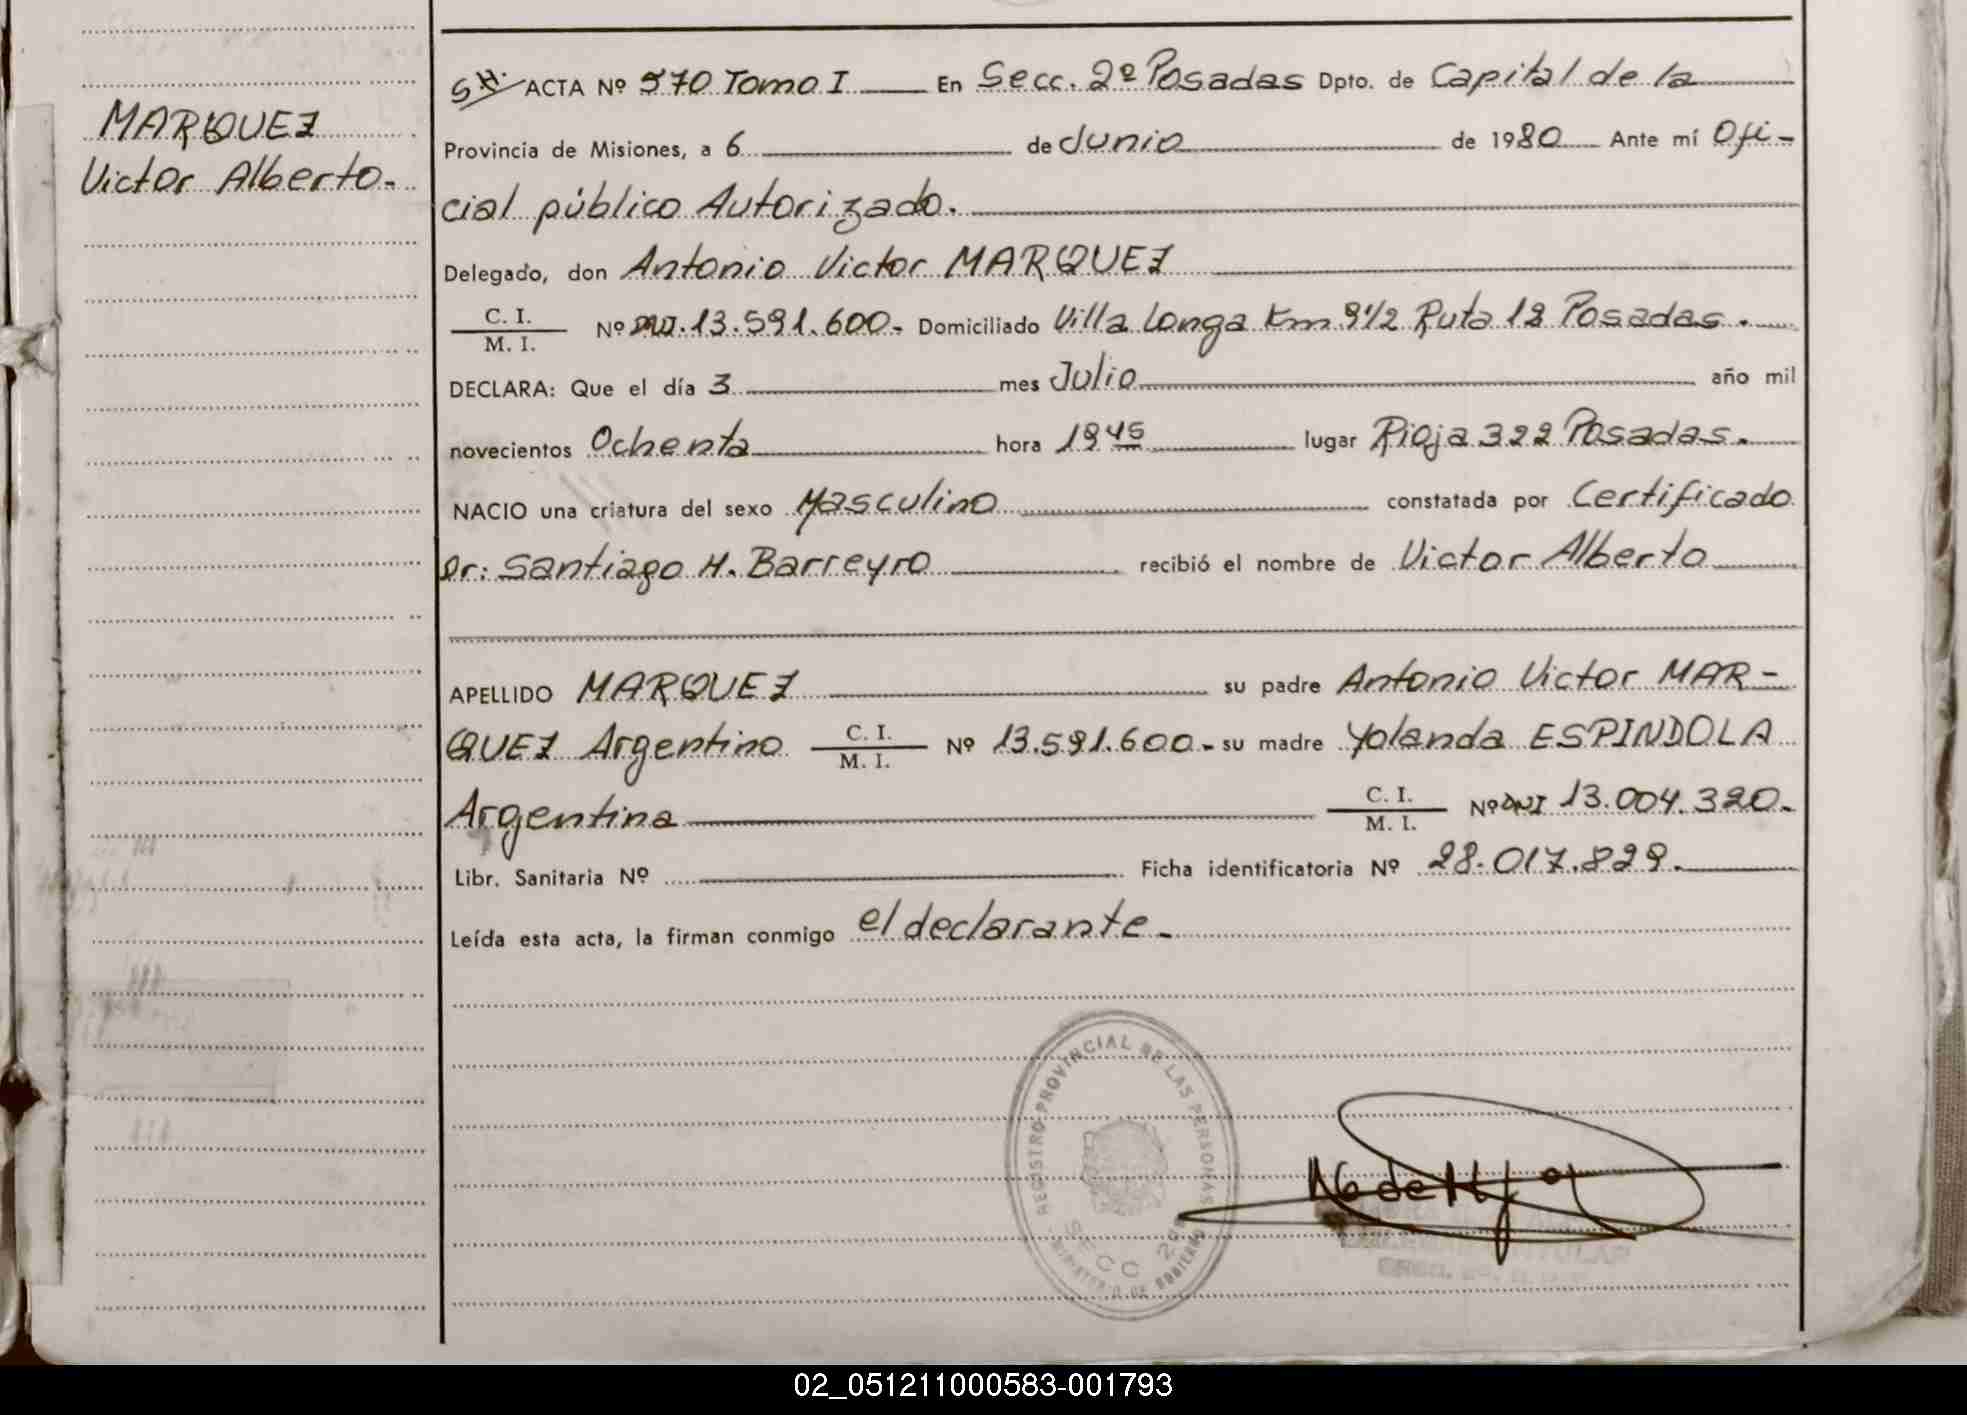 MARQUEZ
Victor Alberto.-
S.H. ACTA Nº 570 Tomo I En Secc. 2º Posadas Dpto. de Capital de la
Provincia de Misiones, a 6 de Junio de 1980 Ante mí Ofi-
cial público Autorizado.
Delegado, don Antonio Victor MARQUEZ
C. I.
M. I. Nº DNI. 13.591.600.- Domiciliado Villa Longa Km 9 1/2 Ruta 12 Posadas.
DECLARA: Que el día 3 mes Julio año mil
novecientos Ochenta hora 19 45 lugar Rioja 322 Posadas.
NACIO una criatura del sexo Masculino constatada por Certificado
Dr: Santiago H. Barreyro recibió el nombre de Victor Alberto
APELLIDO MARQUEZ su padre Antonio Victor MAR-
QUEZ Argentino C. I.
M. I. Nº 13.591.600.- su madre Yolanda ESPINDOLA
Argentina C. I.
M. I. Nº DNI 13.004.320.-
Libr. Sanitaria Nº Ficha identificatoria Nº 28.017.829.-
Leída esta acta, la firman conmigo el declarante.-
REGISTRO PROVINCIAL DE LAS PERSONAS
SECC 2da
MINISTERIO DE GOBIERNO
02_051211000583-001793